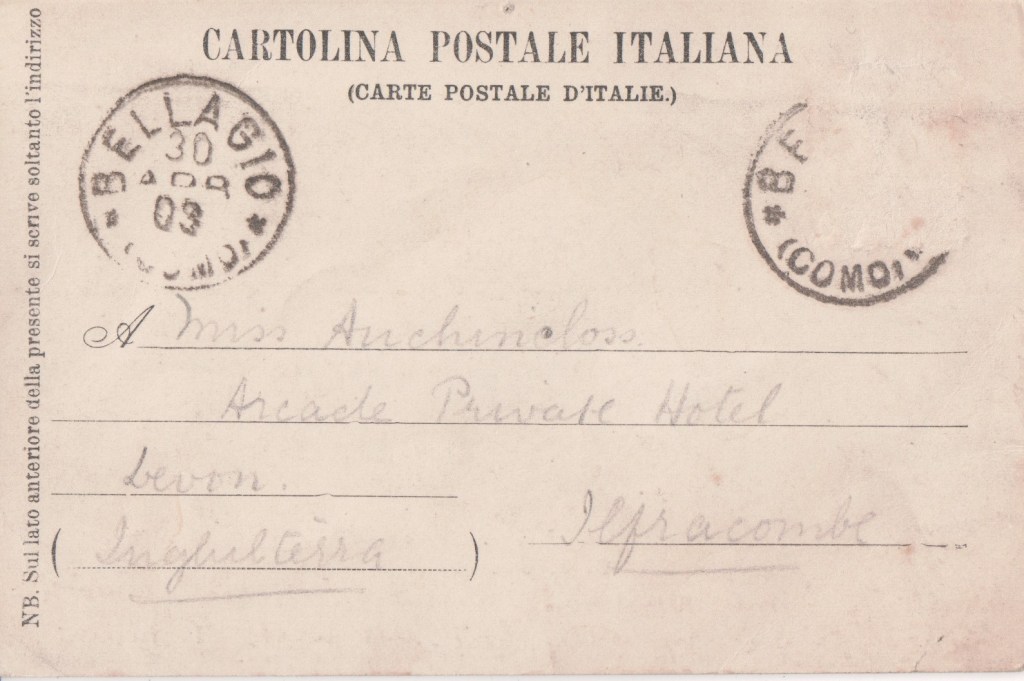 CARTOLINA POSTALE ITALIANA
(CARTE POSTALE D'ITALIE.)
BELLAGIO
30
APR
03
(COMO)
BE
(COMO)
A Miss Auchincloss.
Arcade Private Hotel
Devon.
Ilfracombe
(Inghilterra)
NB. Sul lato anteriore della presente si scrive soltanto l'indirizzo